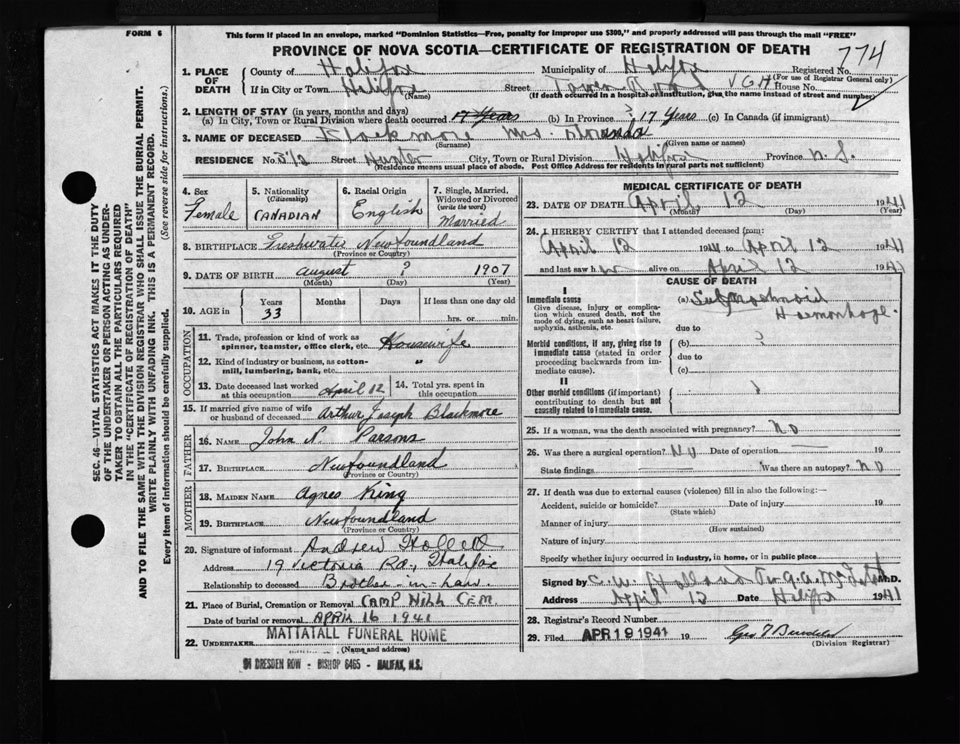 FORM 6
This form if placed in an envelope, marked "Dominion Statistics—Free, penalty for improper use $300," and properly addressed will pass through the mail "FREE"
PROVINCE OF NOVA SCOTIA—CERTIFICATE OF REGISTRATION OF DEATH
774
1. PLACE OF DEATH
County of Halifax Municipality of Halifax Registered No.
(For use of Registrar General only)
If in City or Town Halifax Street Tower Road VGH House No.
(Name) (If death occurred in a hospital or institution, give the name instead of street and number)
2. LENGTH OF STAY (in years, months and days)
(a) In City, Town or Rural Division where death occurred 17 Years (b) In Province 17 Years (c) In Canada (if immigrant)
3. NAME OF DECEASED Blackmore Mrs.
(Surname) (Given name or names)
RESIDENCE No. 5 1/2 Street Hunter City, Town or Rural Division Halifax Province N.S.
(Residence means usual place of abode. Post Office Address for residents in rural parts not sufficient)
SEC. 46—VITAL STATISTICS ACT MAKES IT THE DUTY
OF THE UNDERTAKER OR PERSON ACTING AS UNDER-
TAKER TO OBTAIN ALL THE PARTICULARS REQUIRED
IN THE "CERTIFICATE OF REGISTRATION OF DEATH"
AND TO FILE THE SAME WITH THE DIVISION REGISTRAR WHO SHALL ISSUE THE BURIAL PERMIT.
WRITE PLAINLY WITH UNFADING INK. THIS IS A PERMANENT RECORD.
Every item of information should be carefully supplied. (See reverse side for instructions.)
4. Sex
Female
5. Nationality
(Citizenship)
CANADIAN
6. Racial Origin
English
7. Single, Married,
Widowed or Divorced
(write the word)
Married
8. BIRTHPLACE Freshwater Newfoundland
(Province or Country)
9. DATE OF BIRTH August ? 1907
(Month) (Day) (Year)
10. AGE in
Years Months Days If less than one day old
33 hrs. or min.
OCCUPATION
11. Trade, profession or kind of work as
spinner, teamster, office clerk, etc. Housewife
12. Kind of industry or business, as cotton-
mill, lumbering, bank, etc. "
13. Date deceased last worked
at this occupation April 12
14. Total yrs. spent in
this occupation
15. If married give name of wife
or husband of deceased Arthur Joseph Blackmore
FATHER
16. NAME John N. Parsons
17. BIRTHPLACE Newfoundland
(Province or Country)
MOTHER
18. MAIDEN NAME Agnes King
19. BIRTHPLACE Newfoundland
(Province or Country)
20. Signature of informant Andrew Hollett
Address 19 Victoria Rd., Halifax
Relationship to deceased Brother-in-Law.
21. Place of Burial, Cremation or Removal CAMP HILL CEM.
Date of burial or removal APRIL 16 1941
22. UNDERTAKER MATTATALL FUNERAL HOME
(Name and address)
DRESDEN ROW - BISHOP 6465 - HALIFAX, N.S.
MEDICAL CERTIFICATE OF DEATH
23. DATE OF DEATH April 12 1941
(Month) (Day)
24. I HEREBY CERTIFY that I attended deceased from:
April 12 1941 to April 12 1941
and last saw her alive on April 12 1941
CAUSE OF DEATH
I
Immediate cause
Give disease, injury or complica-
tion which caused death, not the
mode of dying, such as heart failure,
asphyxia, asthenia, etc.
(a) Subarachnoid
Haemorrhage.
due to
Morbid conditions, if any, giving rise to
immediate cause (stated in order
proceeding backwards from im-
mediate cause).
(b) ?
due to
(c)
II
Other morbid conditions (if important)
contributing to death but not
causally related to immediate cause.
25. If a woman, was the death associated with pregnancy? No
26. Was there a surgical operation? No Date of operation 19
State findings Was there an autopsy? No
27. If death was due to external causes (violence) fill in also the following:—
Accident, suicide or homicide? Date of injury 19
(State which)
Manner of injury
(How sustained)
Nature of injury
Specify whether injury occurred in industry, in home, or in public place
Signed by C. W. Holland M.D.
Address April 12 Date Halifax 1941
28. Registrar's Record Number
29. Filed APR 19 1941 19
(Division Registrar)